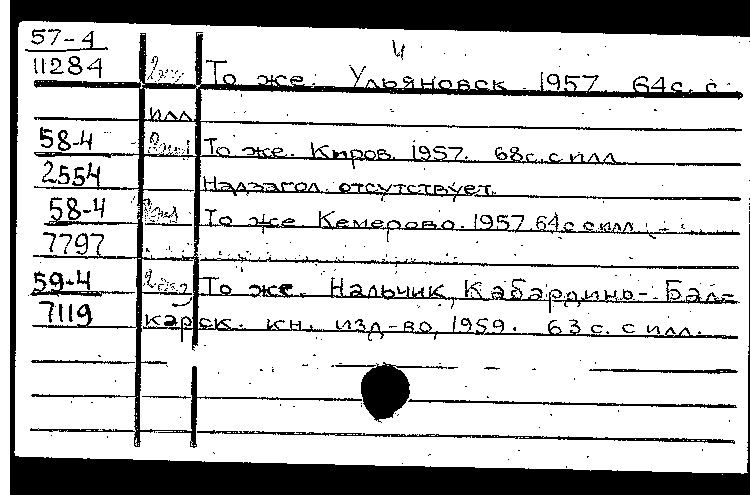 4
57-4
11284 То же. Ульяновск 1957. 64 с. с
илл
58-4 То же. Киров. 1957. 68 с. с илл
2554 Надзагол. отсутствует.
58-4 То же Кемерово. 1957. 64 с с илл.
7797
59-4 То же. Нальчик, Кабардино-Бал=
7119 карск. кн. изд-во, 1959. 63 с. с илл.